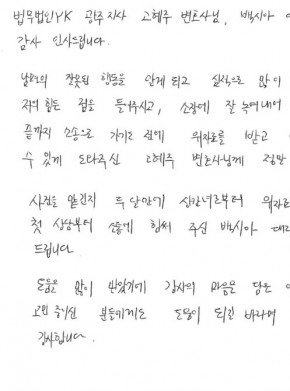 법무법인YK 광주지사 고혜주 변호사님, 백시아
감사 인사드립니다.
남편의 잘못된 행동을 알게 되고 심적으로 많이
저의 힘든 점을 들어주시고, 소장에 잘 녹여내어
끝까지 소송으로 가기전 전에 위자료를 받고
수 있게 도와주신 고혜주 변호사님께 정말
사건을 맡긴지 두달만에 상간녀로부터 위자료
첫 상담부터 힘써 주신 백시아 대리
드립니다
도움을 많이 받았기에 감사의 마음을 담은
고민 중이신 분들에게도 도움이 되길 바라며
감사합니다.